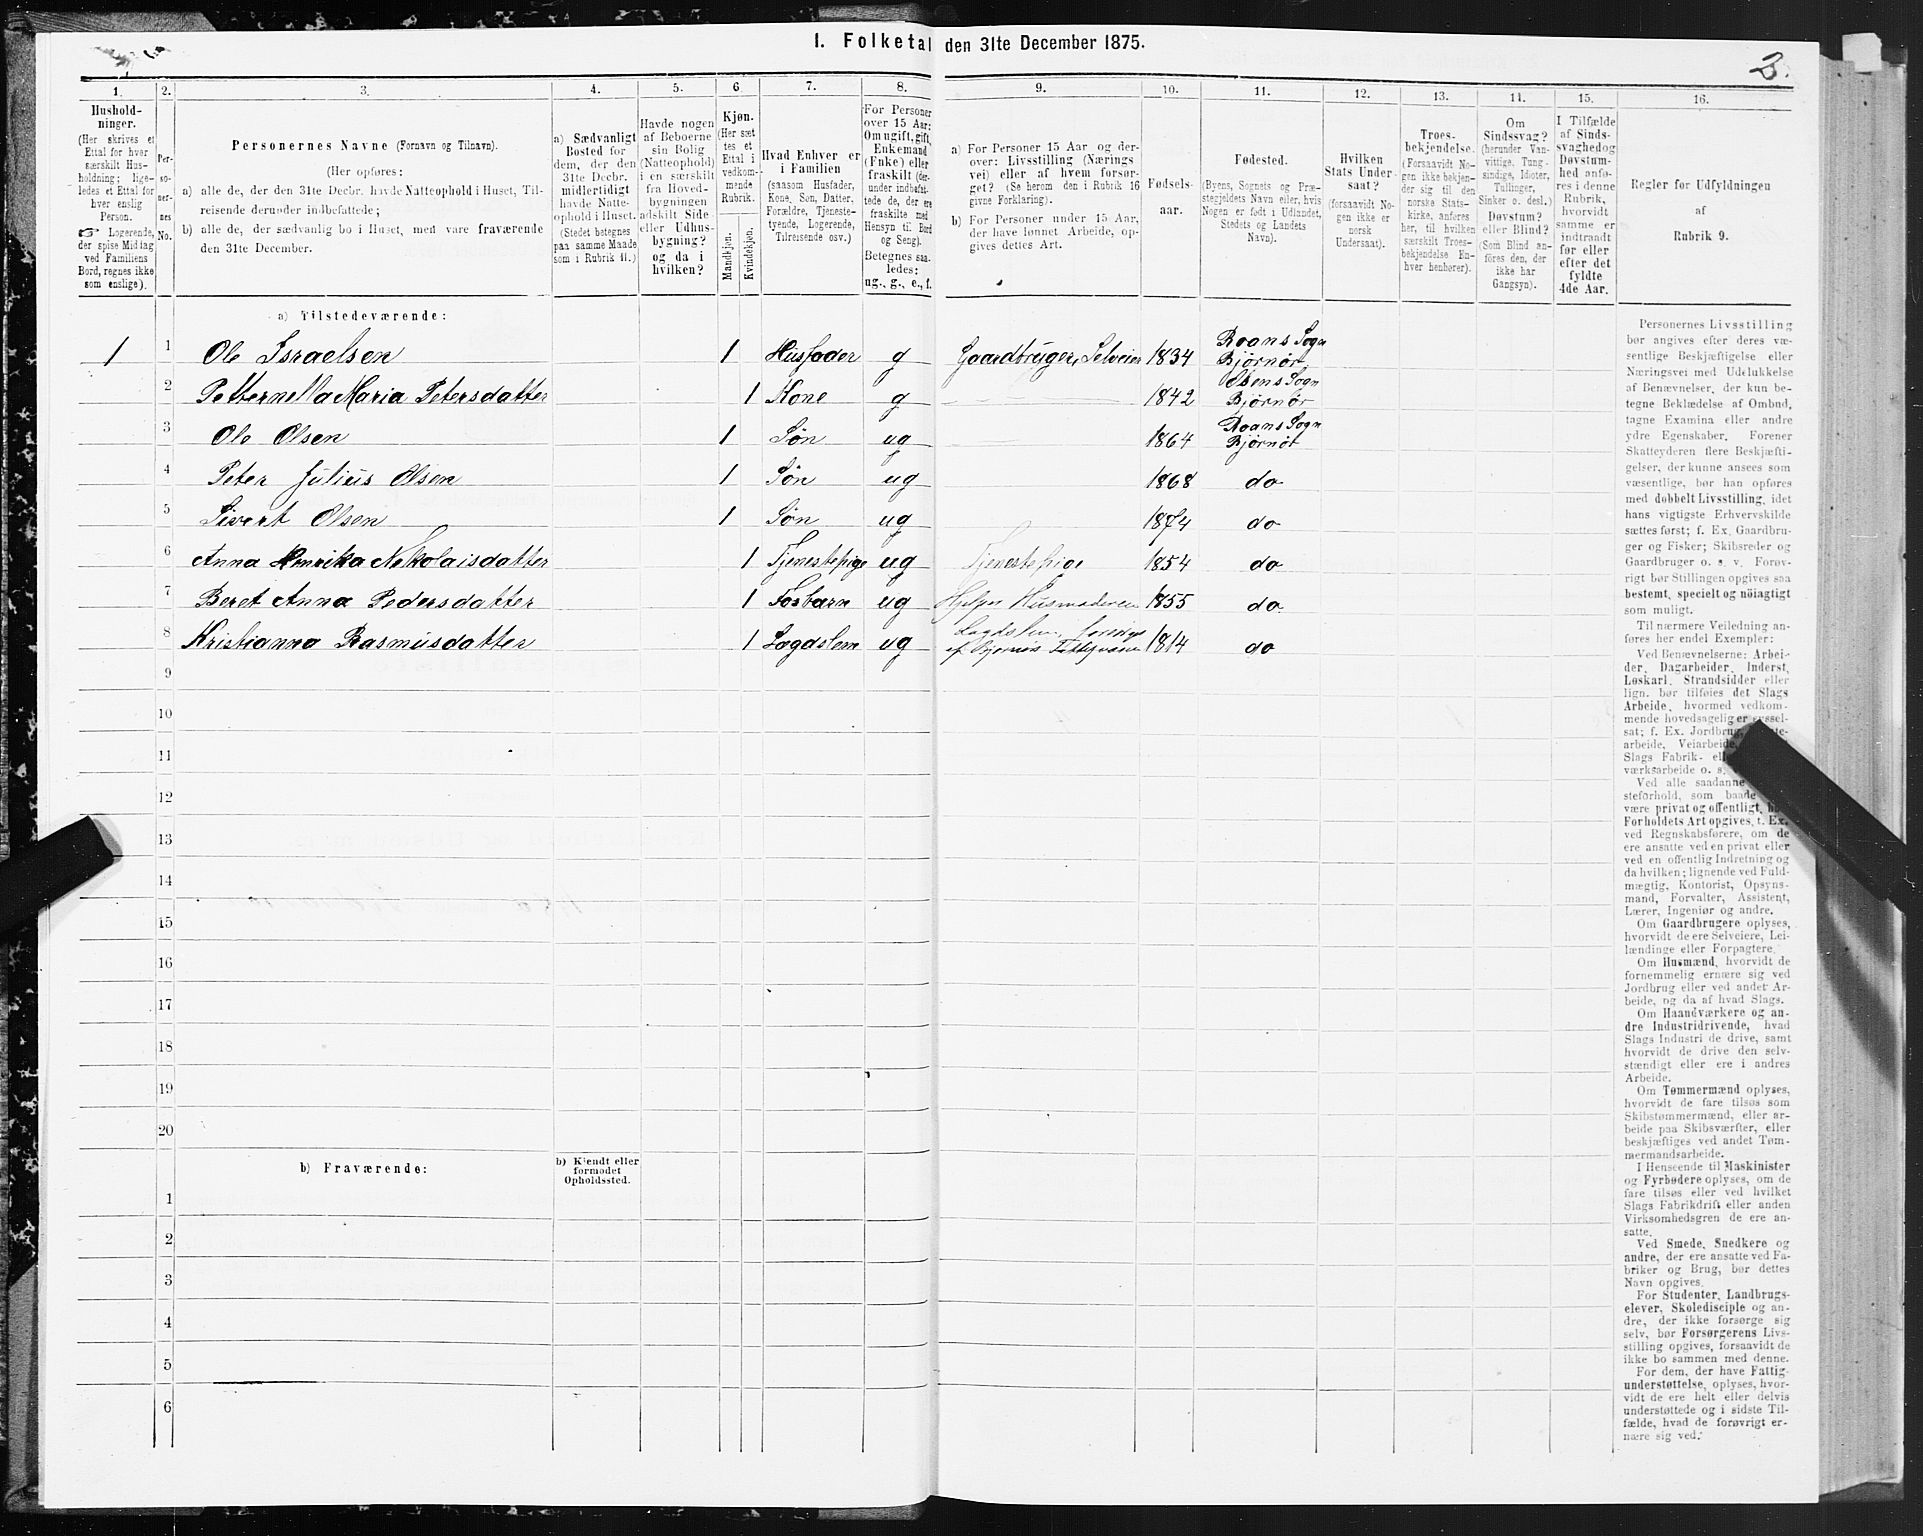 1. Folketal den 31te December 1875.
1.
Hushold-
ninger.
(Her skrives et
Ettal for hver
særskilt Hus-
holdning; lige-
ledes et Ettal for
hver enslig
Person.
☞ Logerende,
der spise Middag
ved Familiens
Bord, regnes ikke
som enslige).
2.
Per-
so-
ner-
nes
No.
3.
Personernes Navne (Fornavn og Tilnavn).
(Her opføres:
a) alle de, der den 31te Decbr. havde Natteophold i Huset, Til-
reisende derunder indbefattede;
b) alle de, der sædvanlig bo i Huset, men vare fraværende
den 31te December.
4.
a) Sædvanligt
Bosted for
dem, der den
31te Decbr.
midlertidigt
havde Natte-
ophold i Huset.
(Stedet betegnes
paa samme Maade
som i Rubrik 11.)
5.
Havde nogen
af Beboerne
sin Bolig
(Natteophold)
i en særskilt
fra Hoved-
bygningen
adskilt Side-
eller Udhus-
bygning?
og da i
hvilken?
6
Kjøn.
(Her sæt
tes et
Ettal i
vedkom-
mende
Rubrik.
Mandkjøn.
Kvindekjøn.
7.
Hvad Enhver er
i Familien
(saasom Husfader,
Kone, Søn, Datter,
Forældre, Tjeneste-
tyende, Logerende,
Tilreisende osv.)
8.
For Personer
over 15 Aar:
Om ugift, gift,
Enkemand
(Enke) eller
fraskilt (der-
under indbefat-
tede de, der ere
fraskilte med
Hensyn til Bord
og Seng).
Betegnes saa-
ledes:
ug., g., e., f.
9.
a) For Personer 15 Aar og der-
over: Livsstilling (Nærings
vei) eller af hvem forsør-
get? (Se herom den i Rubrik 16
givne Forklaring).
b) For Personer under 15 Aar,
der have lønnet Arbeide, op-
gives dettes Art.
10.
Fødsels-
aar.
11.
Fødested.
(Byens, Sognets og Præ-
stegjeldets Navn eller, hvis
Nogen er født i Udlandet,
Stedets og Landets
Navn).
12.
Hvilken
Stats Under-
saat?
(forsaavidt No-
gen ikke er
norsk
Undersaat).
13.
Troes-
bekjendelse.
(Forsaavidt No-
gen ikke bekjen-
der sig til den
norske Stats-
kirke, anføres
her, til hvilken
særskilt Troes-
bekjendelse En-
hver henhører).
14.
Om
Sindssvag?
(herunder Van-
vittige, Tung-
sindige, Idioter,
Tullinger,
Sinker o. desl.)
Døvstum?
eller Blind?
(Som Blind an-
føres den, der
ikke har
Gangsyn).
15.
I Tilfælde
af Sinds-
svaghed og
Døvstum-
hed anfø-
res i denne
Rubrik,
hvorvidt
samme er
indtraadt
før eller
efter det
fyldte
4de Aar.
16.
Regler for Udfyldningen
af
Rubrik 9.
a) Tilstedeværende:
1 1 Ole Israelsen 1 Husfader g Gaardbruger, Selveier 1834 Roans Sogn
Bjørnør
2 Petternella Maria Petersdatter 1 Kone g 1842 Osens Sogn
Bjørnør
3 Ole Olsen 1 Søn ug 1864 Roans Sogn
Bjørnør
4 Peter Julius Olsen 1 Søn ug 1868 do
5 Sivert Olsen 1 Søn ug 1874 do
6 Anna Henrika Nekolaisdatter 1 Tjenestepige ug Tjenestepige 1854 do
7 Beret Anna Pedersdatter 1 Fosbarn ug Hjelper Husmoderen 1855 do
8 Kristianna Rasmusdatter 1 Lagdslem ug Lagdslem,
af Bjørnørs Fattigvæsen 1814 do
9
10
11
12
13
14
15
16
17
18
19
20
b) Fraværende:
b) Kjendt eller
formodet
Opholdssted.
1
2
3
4
5
6
Personernes Livsstilling
bør angives efter deres væ-
sentlige Beskjæftigelse eller
Næringsvei med Udelukkelse
af Benævnelser, der kun be-
tegne Beklædelse af Ombud,
tagne Examina eller andre
ydre Egenskaber. Forener
Skatteyderen flere Beskjæfti-
gelser, der kunne ansees som
væsentlige, bør han opføres
med dobbelt Livsstilling, idet
hans vigtigste Erhvervskilde
sættes først; f. Ex. Gaardbru-
ger og Fisker; Skibsreder og
Gaardbruger o. s. v. Forøv-
rigt bør Stillingen opgives saa
bestemt, specielt og nøiagtigt
som muligt.
Til nærmere Veiledning an-
føres her endel Exempler:
Ved Benævnelserne: Arbei-
der, Dagarbeider, Inderst,
Løskarl, Strandsidder eller
lign. bør tilføies det Slags
Arbeide, hvormed vedkom-
mende hovedsagelig er syssel-
sat; f. Ex. Jordbrug,
arbeide, Veiarbeide,
Slags Fabrik-
værksarbeide o. s.
Ved alle saadanne
steforhold, som baade
være privat og offentligt,
Forholdets Art opgives, f. Ex.
ved Regnskabsførere, om de
ere ansatte ved en privat eller
ved en offentlig Indretning og
da hvilken; lignende ved Fuld-
mægtig, Kontorist, Opsyns-
mand, Forvalter, Assistent,
Lærer, Ingeniør og andre.
Om Gaardbrugere oplyses,
hvorvidt de ere Selveiere, Lei-
lændinge eller Forpagtere.
Om Husmænd, hvorvidt de
fornemmelig ernære sig ved
Jordbrug eller ved andet Ar-
beide, og da af hvad Slags.
Om Haandværkere og an-
dre Industridrivende, hvad
Slags Industri de drive, samt
hvorvidt de drive den selv-
stændigt eller ere i andres
Arbeide.
Om Tømmermænd oplyses,
hvorvidt de fare tilsøs som
Skibstømmermænd, eller ar-
beide paa Skibsværfter, eller
beskjæftiges ved andet Tøm-
mermandsarbeide.
I Henseende til Maskinister
og Fyrbødere oplyses, om de
fare tilsøs eller ved hvilket
Slags Fabrikdrift eller anden
Virksomhedsgren de ere an-
satte.
Ved Smede, Snedkere og
andre, der ere ansatte ved Fa-
briker og Brug, bør dettes
Navn opgives.
For Studenter, Landbrugs-
elever, Skoledisciple og an-
dre, der ikke forsørge sig
selv, bør Forsørgerens Livs-
stilling opgives, forsaavidt de
ikke bo sammen med denne.
For dem, der have Fattig-
understøttelse, oplyses, hvor-
vidt de ere helt eller delvis
understøttede og i sidste Til-
fælde, hvad de forøvrigt er-
nære sig ved.